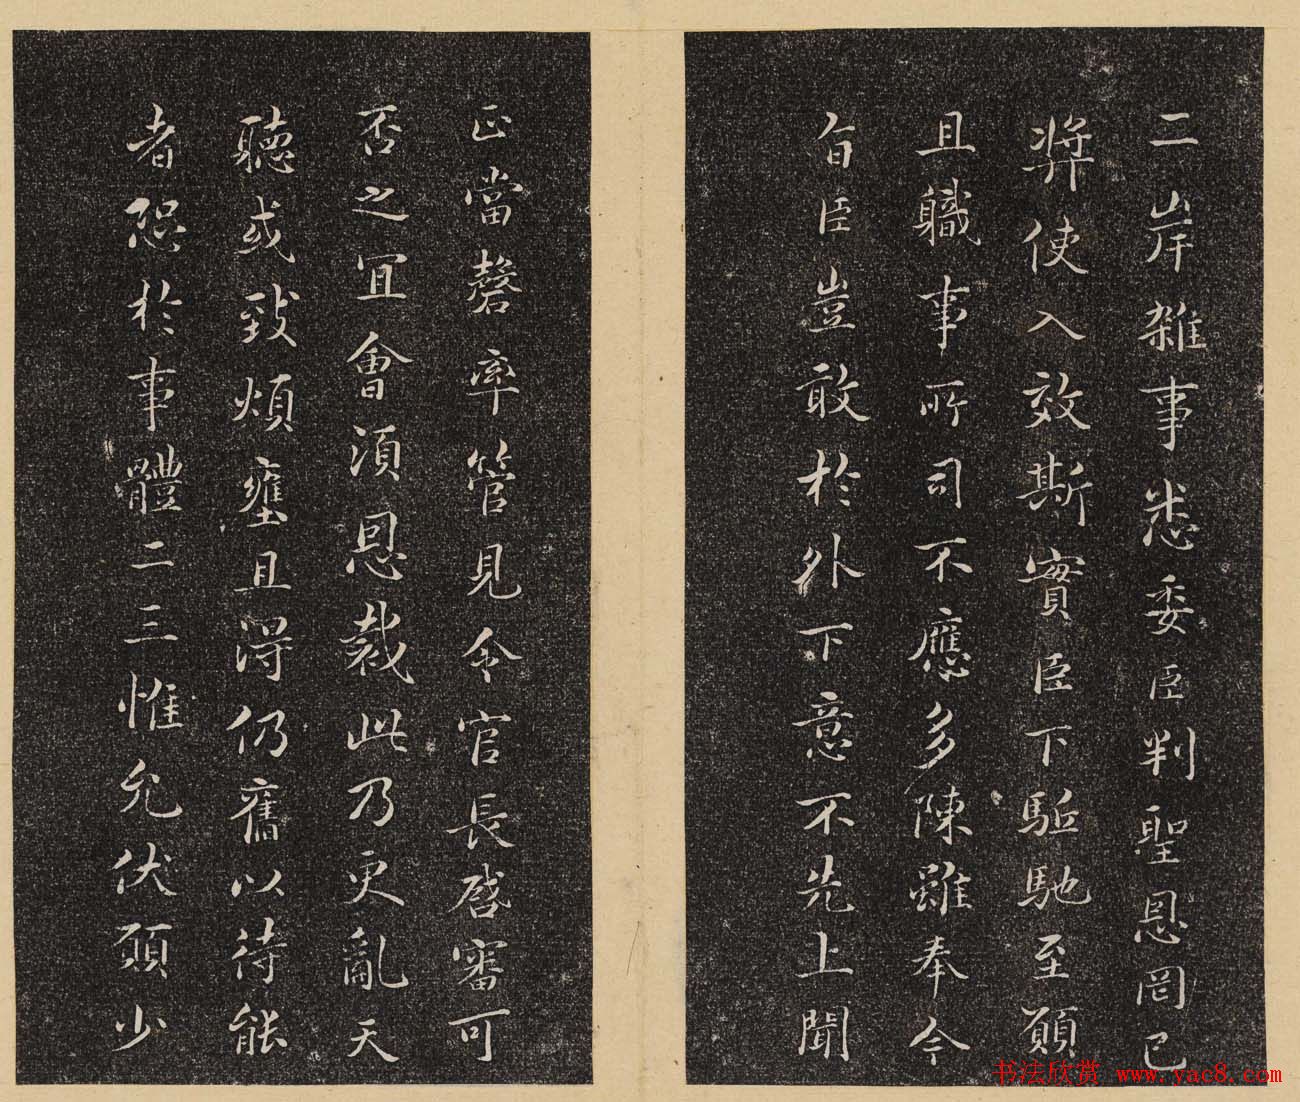 二岸雜事悉委臣判聖恩罔已
奬使入效斯實臣下駈馳至願
且軄事所司不應多陳雖奉今
旨臣豈敢於外下意不先上聞
正當罄率管見令官長啓審可
否之宜會須恩裁此乃更亂天
聽或致煩壅且淂仍舊以待能
者恐於事體二三惟允伏願少
书法欣赏 www.yac8.com